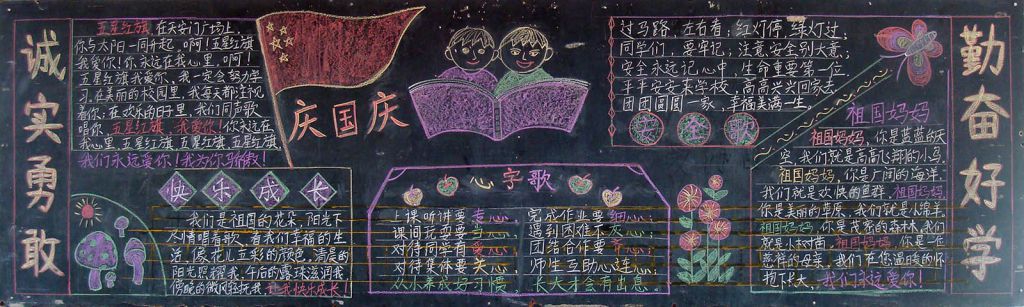 诚实勇敢
五星红旗 在天安门广场上,
你与太阳一同升起,啊!五星红旗
我爱你!你永远在我心里,啊!
五星红旗我爱你、我一定会努力学
习,在美丽的校园里,我每天都注视
着你;在欢乐的日子里,我们同声歌
唱你,五星红旗,我爱你!你永远在
我心里,五星红旗 五星红旗 五星红旗
我们永远爱你!我为你骄傲!
庆国庆
过马路,左右看,红灯停,绿灯过,
同学们,要牢记,注意安全别大意;
安全永远记心中,生命重要第一位.
平平安安来学校,高高兴兴回家去
团团圆圆一家,幸福美满一生。
安全歌
祖国妈妈
祖国妈妈,你是蓝蓝的天
空,我们就是高高飞翔的小鸟.
祖国妈妈,你是广阔的海洋.
我们就是欢快的鱼群 祖国妈妈
你是美丽的草原,我们就是小绵羊.
祖国妈妈,你是茂密的森林,我
们就是小树苗,祖国妈妈,你是一位
慈祥的母亲,我们在您温暖的怀
抱下长大,我们永远爱您!
快乐成长
我们是祖国的花朵,阳光下
尽情唱着歌,看我们幸福的生
活,像花儿五彩的颜色,清晨的
阳光照耀我,午后的露珠滋润我
傍晚的微风轻抚我 让我快乐成长!
心字歌
上课听讲要专心, 完成作业要细心;
课间玩耍要当心, 遇到困难不灰心;
对待同学有爱心, 团结合作要齐心;
对待集体要关心, 师生互助心连心;
从小养成好习惯 长大才会有出息
勤奋好学